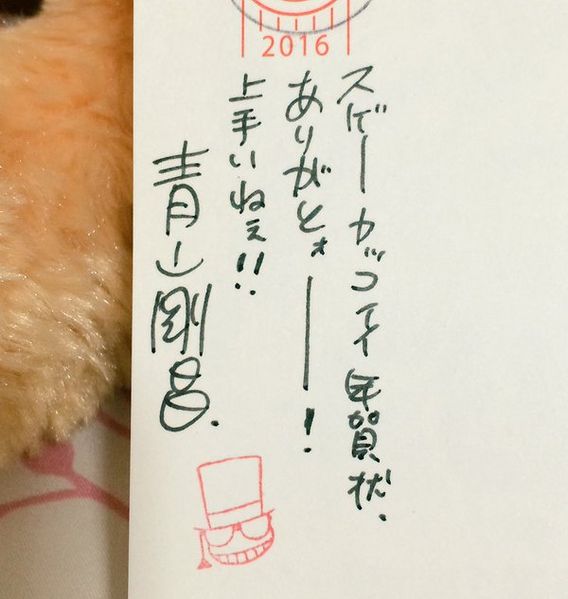 2016
スゲーカッコイイ年賀状、
ありがとォーー！
上手いねぇ!!
青山剛昌.